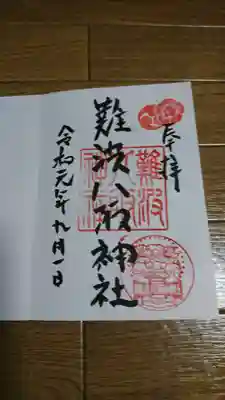 奉拝
難波八阪神社
難波八阪神社
令和元年九月一日